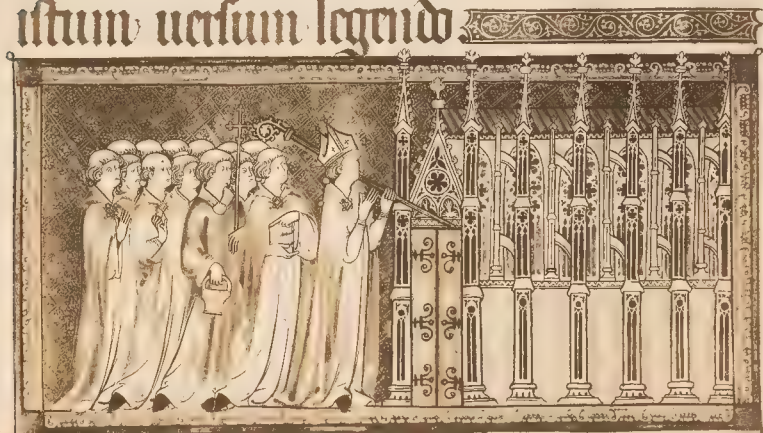 istum uersum legendo.